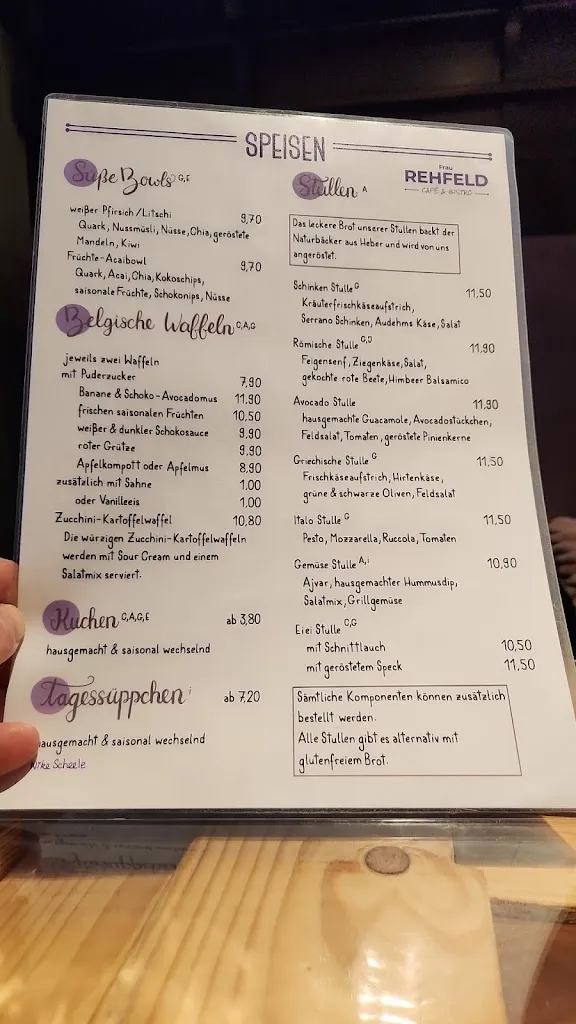 SPEISEN
Frau
REHFELD
CAFÉ & BISTRO
Süße Bowls G,E
weißer Pfirsich/Litschi 9,70
Quark, Nussmüsli, Nüsse, Chia, geröstete
Mandeln, Kiwi
Früchte-Acaibowl 9,70
Quark, Acai, Chia, Kokoschips,
saisonale Früchte, Schokonips, Nüsse
Belgische Waffeln C,A,G
jeweils zwei Waffeln
mit Puderzucker 7,90
Banane & Schoko-Avocadomus 11,90
frischen saisonalen Früchten 10,50
weißer & dunkler Schokosauce 9,90
roter Grütze 9,90
Apfelkompott oder Apfelmus 8,90
zusätzlich mit Sahne 1,00
oder Vanilleeis 1,00
Zucchini-Kartoffelwaffel 10,80
Die würzigen Zucchini-Kartoffelwaffeln
werden mit Sour Cream und einem
Salatmix serviert.
Kuchen C,A,G,E ab 3,80
hausgemacht & saisonal wechselnd
Tagessüppchen i ab 7,20
hausgemacht & saisonal wechselnd
Nike Scheele
Stullen A
Das leckere Brot unserer Stullen backt der
Naturbäcker aus Heber und wird von uns
angeröstet.
Schinken Stulle G 11,50
Kräuterfrischkäseaufstrich,
Serrano Schinken, Audehms Käse, Salat
Römische Stulle G,J 11,90
Feigensenf, Ziegenkäse, Salat,
gekochte rote Beete, Himbeer Balsamico
Avocado Stulle 11,90
hausgemachte Guacamole, Avocadostückchen,
Feldsalat, Tomaten, geröstete Pinienkerne
Griechische Stulle G 11,50
Frischkäseaufstrich, Hirtenkäse,
grüne & schwarze Oliven, Feldsalat
Italo Stulle G 11,50
Pesto, Mozzarella, Ruccola, Tomaten
Gemüse Stulle A,i 10,90
Ajvar, hausgemachter Hummusdip,
Salatmix, Grillgemüse
Eiei Stulle C,G
mit Schnittlauch 10,50
mit geröstetem Speck 11,50
Sämtliche Komponenten können zusätzlich
bestellt werden.
Alle Stullen gibt es alternativ mit
glutenfreiem Brot.